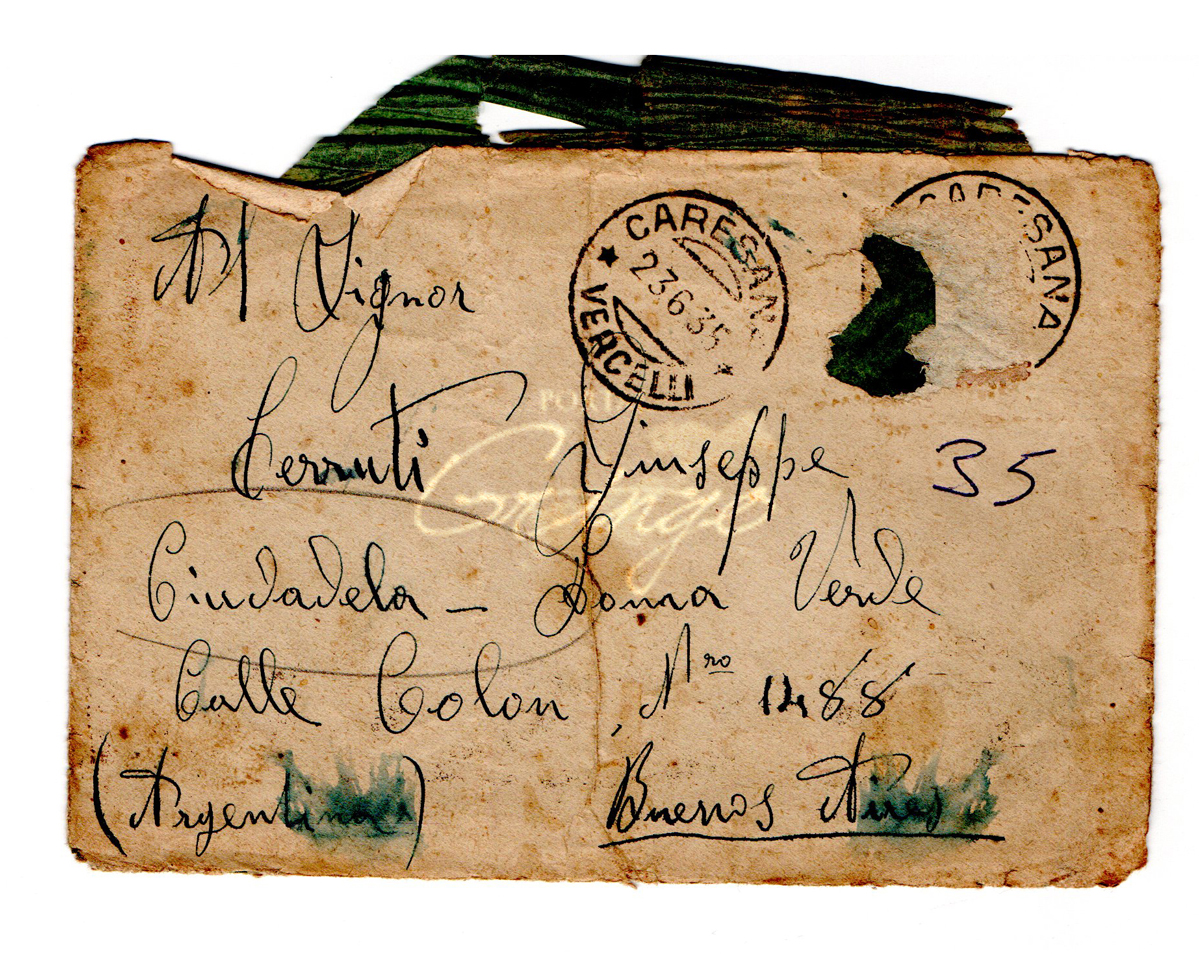 CARESANA
23.6.35
VERCELLI
CARESANA
Al Signor
Cerruti Giuseppe
35
Ciudadela - Loma Verde
Calle Colon Nro 1488
(Argentina) Buenos Aires